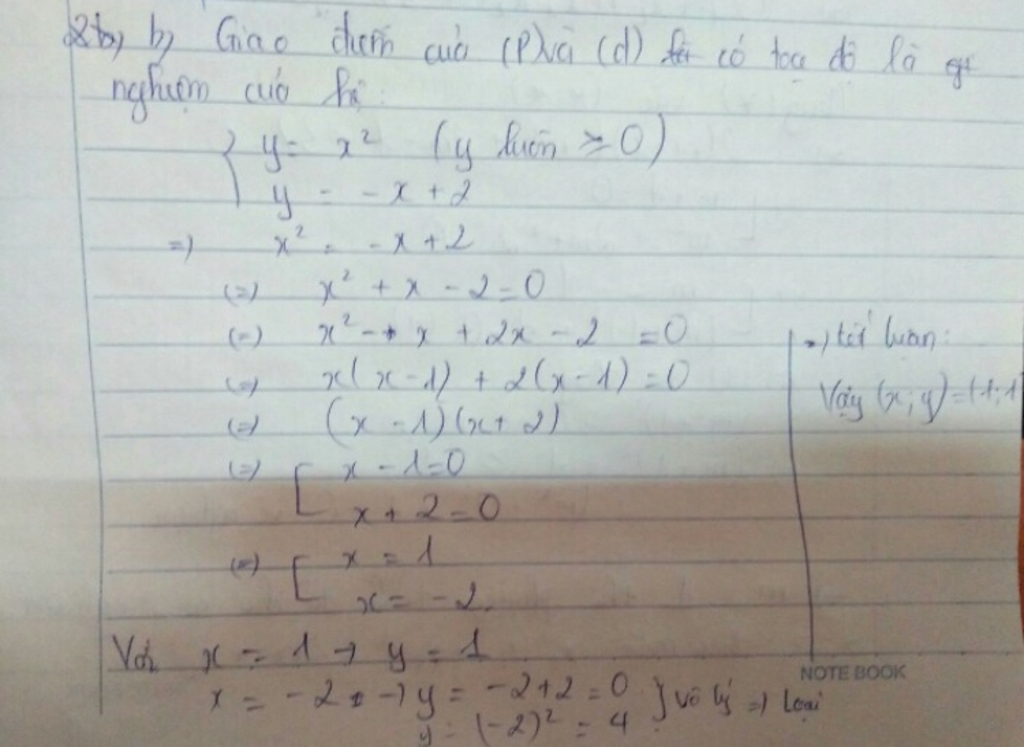 b, Giao điểm của (P) và (d) có toạ độ là
nghiệm của hệ:
{ y = x² (y luôn ≥ 0)
y = -x + 2
=) x² = -x + 2
(=) x² + x - 2 = 0
(=) x² - x + 2x - 2 = 0
(=) x(x - 1) + 2(x - 1) = 0
(=) (x - 1)(x + 2)
(=) [ x - 1 = 0
x + 2 = 0
(=) [ x = 1
x = -2
Với x = 1 → y = 1
x = -2 → y = -2 + 2 = 0 } vô lý =) loại
y = (-2)² = 4
=) kết luận:
Vậy (x; y) = (1; 1
NOTE BOOK